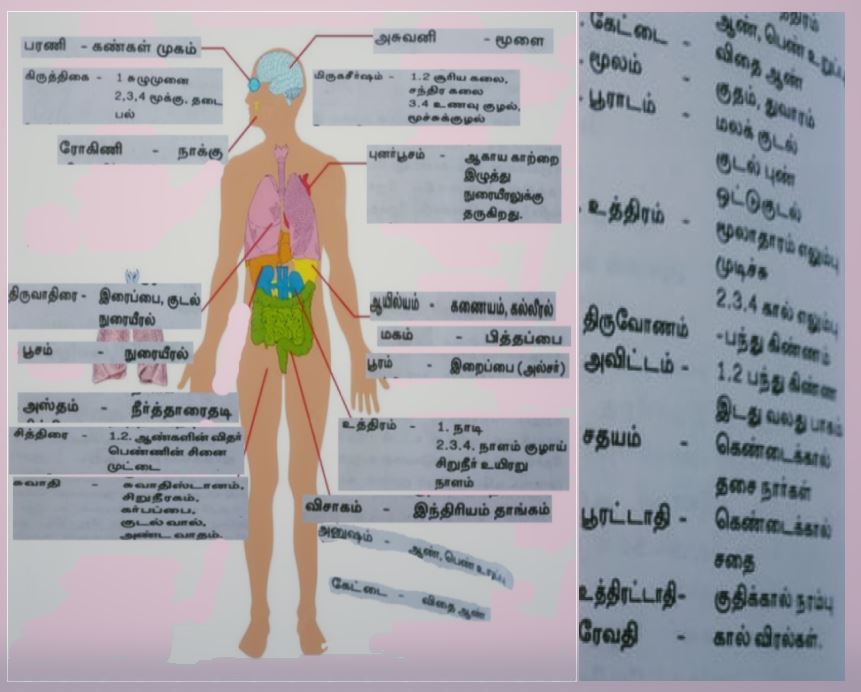 பரணி - கண்கள் முகம்
அசுவனி - மூளை
கிருத்திகை - 1 சுழுமுனை
2,3,4 மூக்கு. தடை
பல்
மிருகசீர்ஷம் - 1.2 சூரிய கலை,
சந்திர கலை
3.4 உணவு குழல்,
மூச்சுக்குழல்
ரோகிணி - நாக்கு
புனர்பூசம் - ஆகாய காற்றை
இழுத்து
நுரையீரலுக்கு
தருகிறது.
திருவாதிரை - இரைப்பை, குடல்
நுரையீரல்
பூசம் - நுரையீரல்
ஆயில்யம் - கணையம், கல்லீரல்
மகம் - பித்தப்பை
பூரம் - இறைப்பை (அல்சர்)
அஸ்தம் - நீர்த்தாரைதடி
சித்திரை - 1.2. ஆண்களின் விதர்
பெண்ணின் சினை
முட்டை
சுவாதி - சுவாதிஸ்டானம்,
சிறுநீரகம்,
கர்பப்பை,
குடல் வால்,
அண்ட வாதம்.
உத்திரம் - 1. நாடி
2.3.4. நாளம் குழாய்
சிறுநீர் உயிரறு
நாளம்
விசாகம் - இந்திரியம் தாங்கம்
அனுஷம் - ஆண், பெண் உறுப்பு
கேட்டை - விதை ஆண்
கேட்டை - ஆண், பெண் உறுப்பு
மூலம் - விதை ஆண்
பூராடம் - குதம், துவாரம்
மலக் குடல்
குடல் புண்
ஒட்டுகுடல்
உத்திரம் - மூலாதாரம் எலும்பு
முடிச்சு
2.3.4 கால் எலும்பு
திருவோணம் - பந்து கிண்ணம்
அவிட்டம் - 1.2 பந்து கிண்ண
இடது வலது பாகம்
சதயம் - கெண்டைக்கால்
தசை நார்கள்
பூரட்டாதி - கெண்டைக்கால்
சதை
உத்திரட்டாதி- குதிக்கால் நரம்பு
ரேவதி - கால் விரல்கள்.